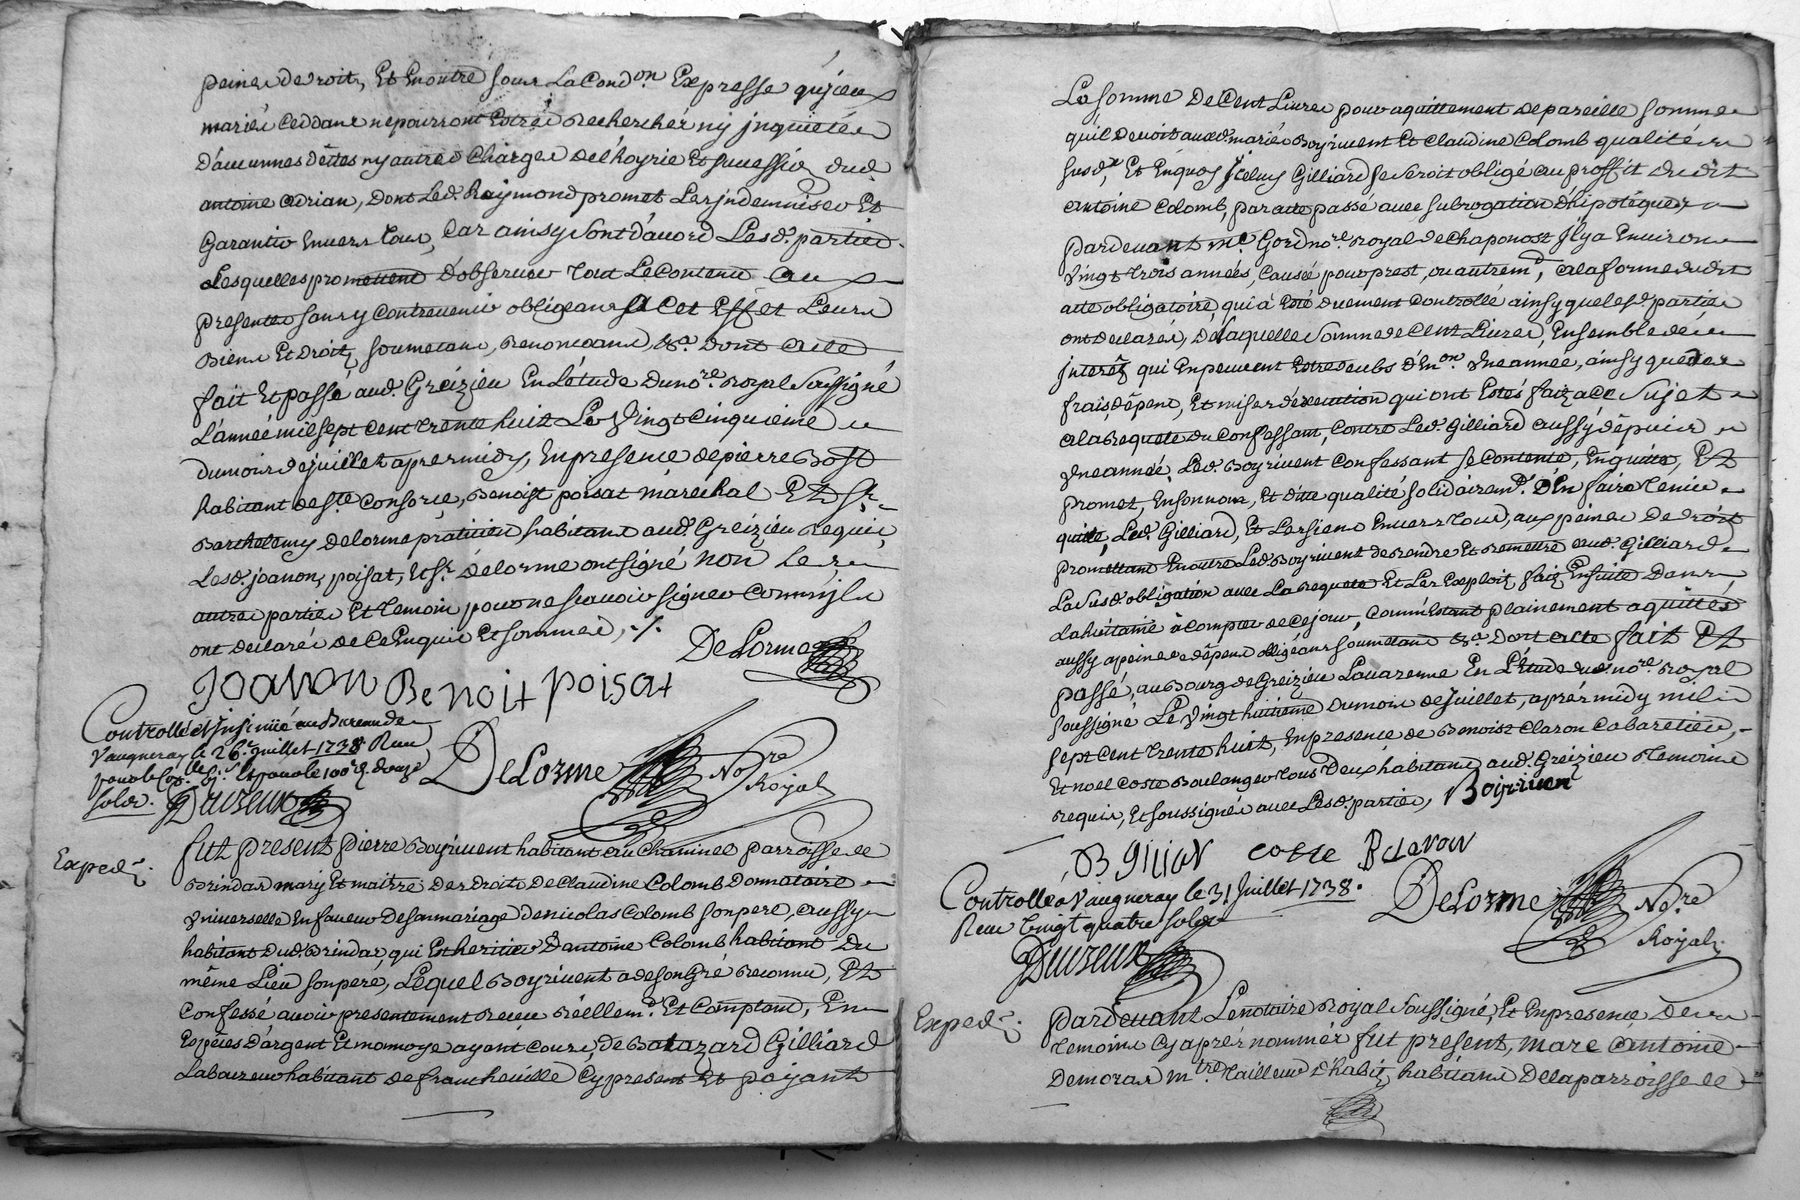 peines de droit, Et Enoutre sous La Cond.on Expresse qu'jceux
mariés Ceddans ne pourront Estre Rechercher ny jnquietés
D'aucunnes dêttes ny autres Charges de l'hoyrie Et succession dud.
antoine adrian, Dont Led. Raymond promet Les jndemniser Et
Garantir Envers tous, Car ainsy sont d'acord Lesd. parties
Lesquelles promettent d'observer tout Le Contenu aux
presentes sans y contrevenir obligeans a Cet Effet Leurs
Biens Et droits, soumetans, Renonceans &a. Dont acte
fait Et passé aud. Greizieu En L'étude du no.re Royal soussigné
L'année mil sept cent trente huit Le vingt cinquiême
du mois de juillet apres midy, En presence de pierre Bost
habitant de s.te Consorce, Benoist poisat maréchal Et s.r
Barthelemy Delorme praticien habitans aud. Greizieu Requis,
Lesd. joanon, poisat, Et s.r Delorme ont signé non Les
autres parties Et temoin pour ne scavoir signer Comm'jls
ont declarés de Ce Enquis Et sommés, ./.
DeLorme
JOANON Benoit poisat
Controllé et Insinüé au Bureau de
Vaugneray le 26.e juillet 1738 Receu
pour le Co.lle Et pour le 100.e d. douze
sols. Duvzeux
DeLorme No.re
Royal
Exped.
fut present pierre Boyrivent habitant au Chaninel parroisse de
Brindas mary Et maitre Des droits De Claudine Colomb Donnataire
Vniverselle En faveur De son mariage de nicolas Colomb son pere, aussy
habitant Dud. Brindas, qui Est heritier D'antoine Colomb habitant Du
même Lieu son pere, Lequel Boyrivent a de son Gré Reconnu, Et
Confessé avoir presentement Receu Réellem.t Et Comptant, En
Espêces d'argent Et monnoye ayant Cours, de Batazard Gilliard
Laboureur habitant de francheville Cy present Et payant
La somme De Cent Livres pour aquittement de pareille somme
qu'il Devoit auxd. mariés Boyrivent Et Claudine Colomb qualités
susd., Et Enquoy jceluy Gilliard se seroit obligé au proffit dudit
antoine Colomb, par acte passé avec subrogation d'hipotêques
pardevant m.e Gord no.re Royal de Chaponost Jl y a Environ
vingt trois années, Causée pour prest, ou autrem.t, a la forme dudit
acte obligatoire, qui à Esté duement Controllé ainsy que lesd. parties
ont declarés, De laquelle somme de Cent Livres, Ensemble des
jnterêts qui En peuvent Estre deubs D'En.on Vne année, ainsy que des
frais, dêpens, Et mises d'éxecution qui ont Estés faits a Ce sujet
a la Requete du Confessant, Contre Led. Gilliard aussy dêpuis
Vne année, Led. Boyrivent Confessant se Contente, En quitte, Et
promet, En son nom, Et ditte qualité solidairem.t D'En faire tenir
quitte, Led. Gilliard, Et Les siens Envers tous, aux peines De droit
promettant En outre Led. Boyrivent de Rendre Et Remettre aud. Gilliard
La susd. obligation avec La Requete Et Les Exploits faits Ensuite Dans
La huitaine à Compter de Ce jour, Comm'Estant plainement aquittés
aussy a peine de dêpens obligeans soumettans &a. Dont acte fait Et
passé, au Bourg de Greizieu Lavarenne En L'Etude dud. no.re Royal
soussigné Le vingt huitiême du mois de juillet, après midy mil
sept Cent trente huit, En presence de Benoist Claron Cabaretier,
Et noel Coste Boulanger tous Deux habitans aud. Greizieu temoins
requis, Et soussignés avec Lesd. parties, Boyriven
B Giliar coste B claron
Controllé à Vaugneray le 31 juillet 1738.
Receu vingt quatre sols
Duvzeux
DeLorme No.re
Royal
Exped.
Pardevant Le notaire Royal soussigné, Et En presence Des
temoins Cy après nommés fut present, marc antoine
Demoras m.tre tailleur d'habits habitans De la parroisse de